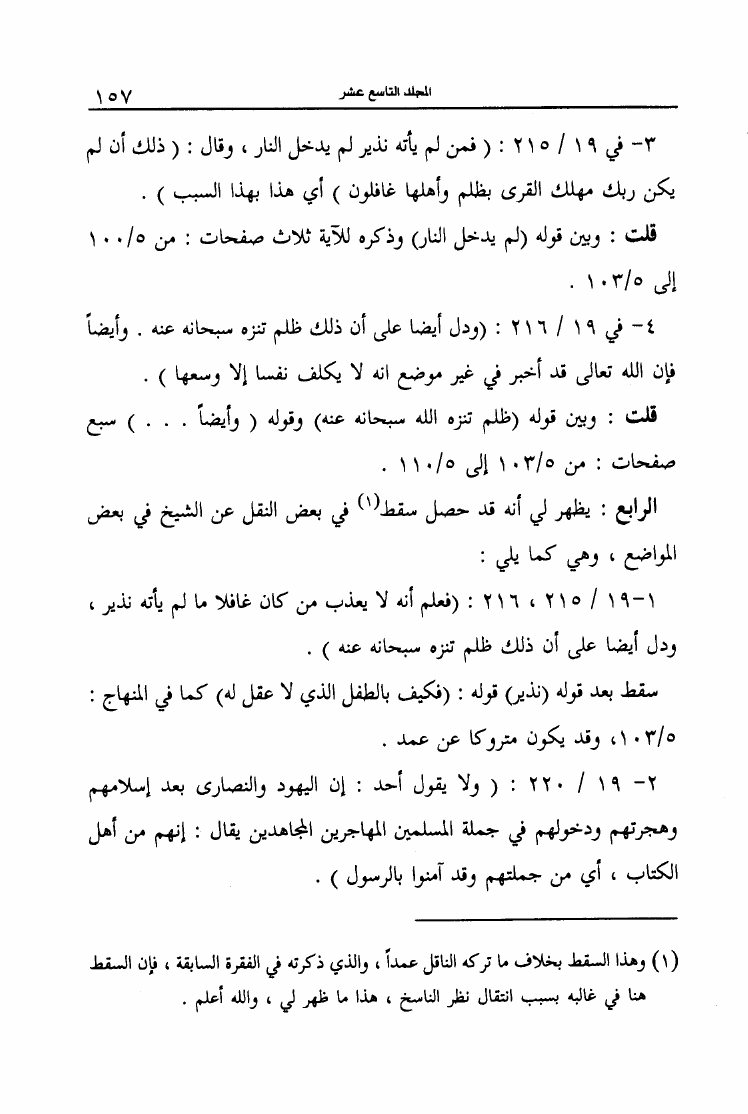 المجلد التاسع عشر
١٥٧
٣- في ١٩ / ٢١٥ : ( فمن لم يأته نذير لم يدخل النار ، وقال : ( ذلك أن لم
يكن ربك مهلك القرى بظلم وأهلها غافلون ) أي هذا بهذا السبب ) .
قلت : وبين قوله (لم يدخل النار) وذكره للآية ثلاث صفحات : من ١٠٠/٥
إلى ١٠٣/٥ .
٤- في ١٩ / ٢١٦ : (ودل أيضا على أن ذلك ظلم تنزه سبحانه عنه . وأيضاً
فإن الله تعالى قد أخبر في غير موضع انه لا يكلف نفسا إلا وسعها ) .
قلت : وبين قوله (ظلم تنزه الله سبحانه عنه) وقوله ( وأيضاً . . . ) سبع
صفحات : من ١٠٣/٥ إلى ١١٠/٥ .
الرابع : يظهر لي أنه قد حصل سقط(١) في بعض النقل عن الشيخ في بعض
المواضع ، وهي كما يلي :
١-١٩ / ٢١٥ ، ٢١٦ : (فعلم أنه لا يعذب من كان غافلا ما لم يأته نذير ،
ودل أيضا على أن ذلك ظلم تنزه سبحانه عنه ) .
سقط بعد قوله (نذير) قوله : (فكيف بالطفل الذي لا عقل له) كما في المنهاج :
١٠٣/٥، وقد يكون متروكا عن عمد .
٢- ١٩ / ٢٢٠ : ( ولا يقول أحد : إن اليهود والنصارى بعد إسلامهم
وهجرتهم ودخولهم في جملة المسلمين المهاجرين المجاهدين يقال : إنهم من أهل
الكتاب ، أي من جملتهم وقد آمنوا بالرسول ) .
(١) وهذا السقط بخلاف ما تركه الناقل عمداً ، والذي ذكرته في الفقرة السابقة ، فإن السقط
هنا في غالبه بسبب انتقال نظر الناسخ ، هذا ما ظهر لي ، والله أعلم .